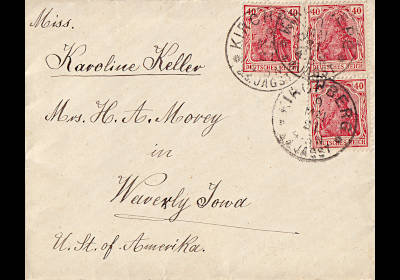 Miss.
Karoline Keller
Mrs. H. A. Morey
in
Waverly Iowa
U. St. of Amerika.
40 40
DEUTSCHES REICH
40 40
DEUTSCHES REICH
40
DEUTSCHES REICH
KIRCHBERG
JAGST
KIRCHBERG
JAGST